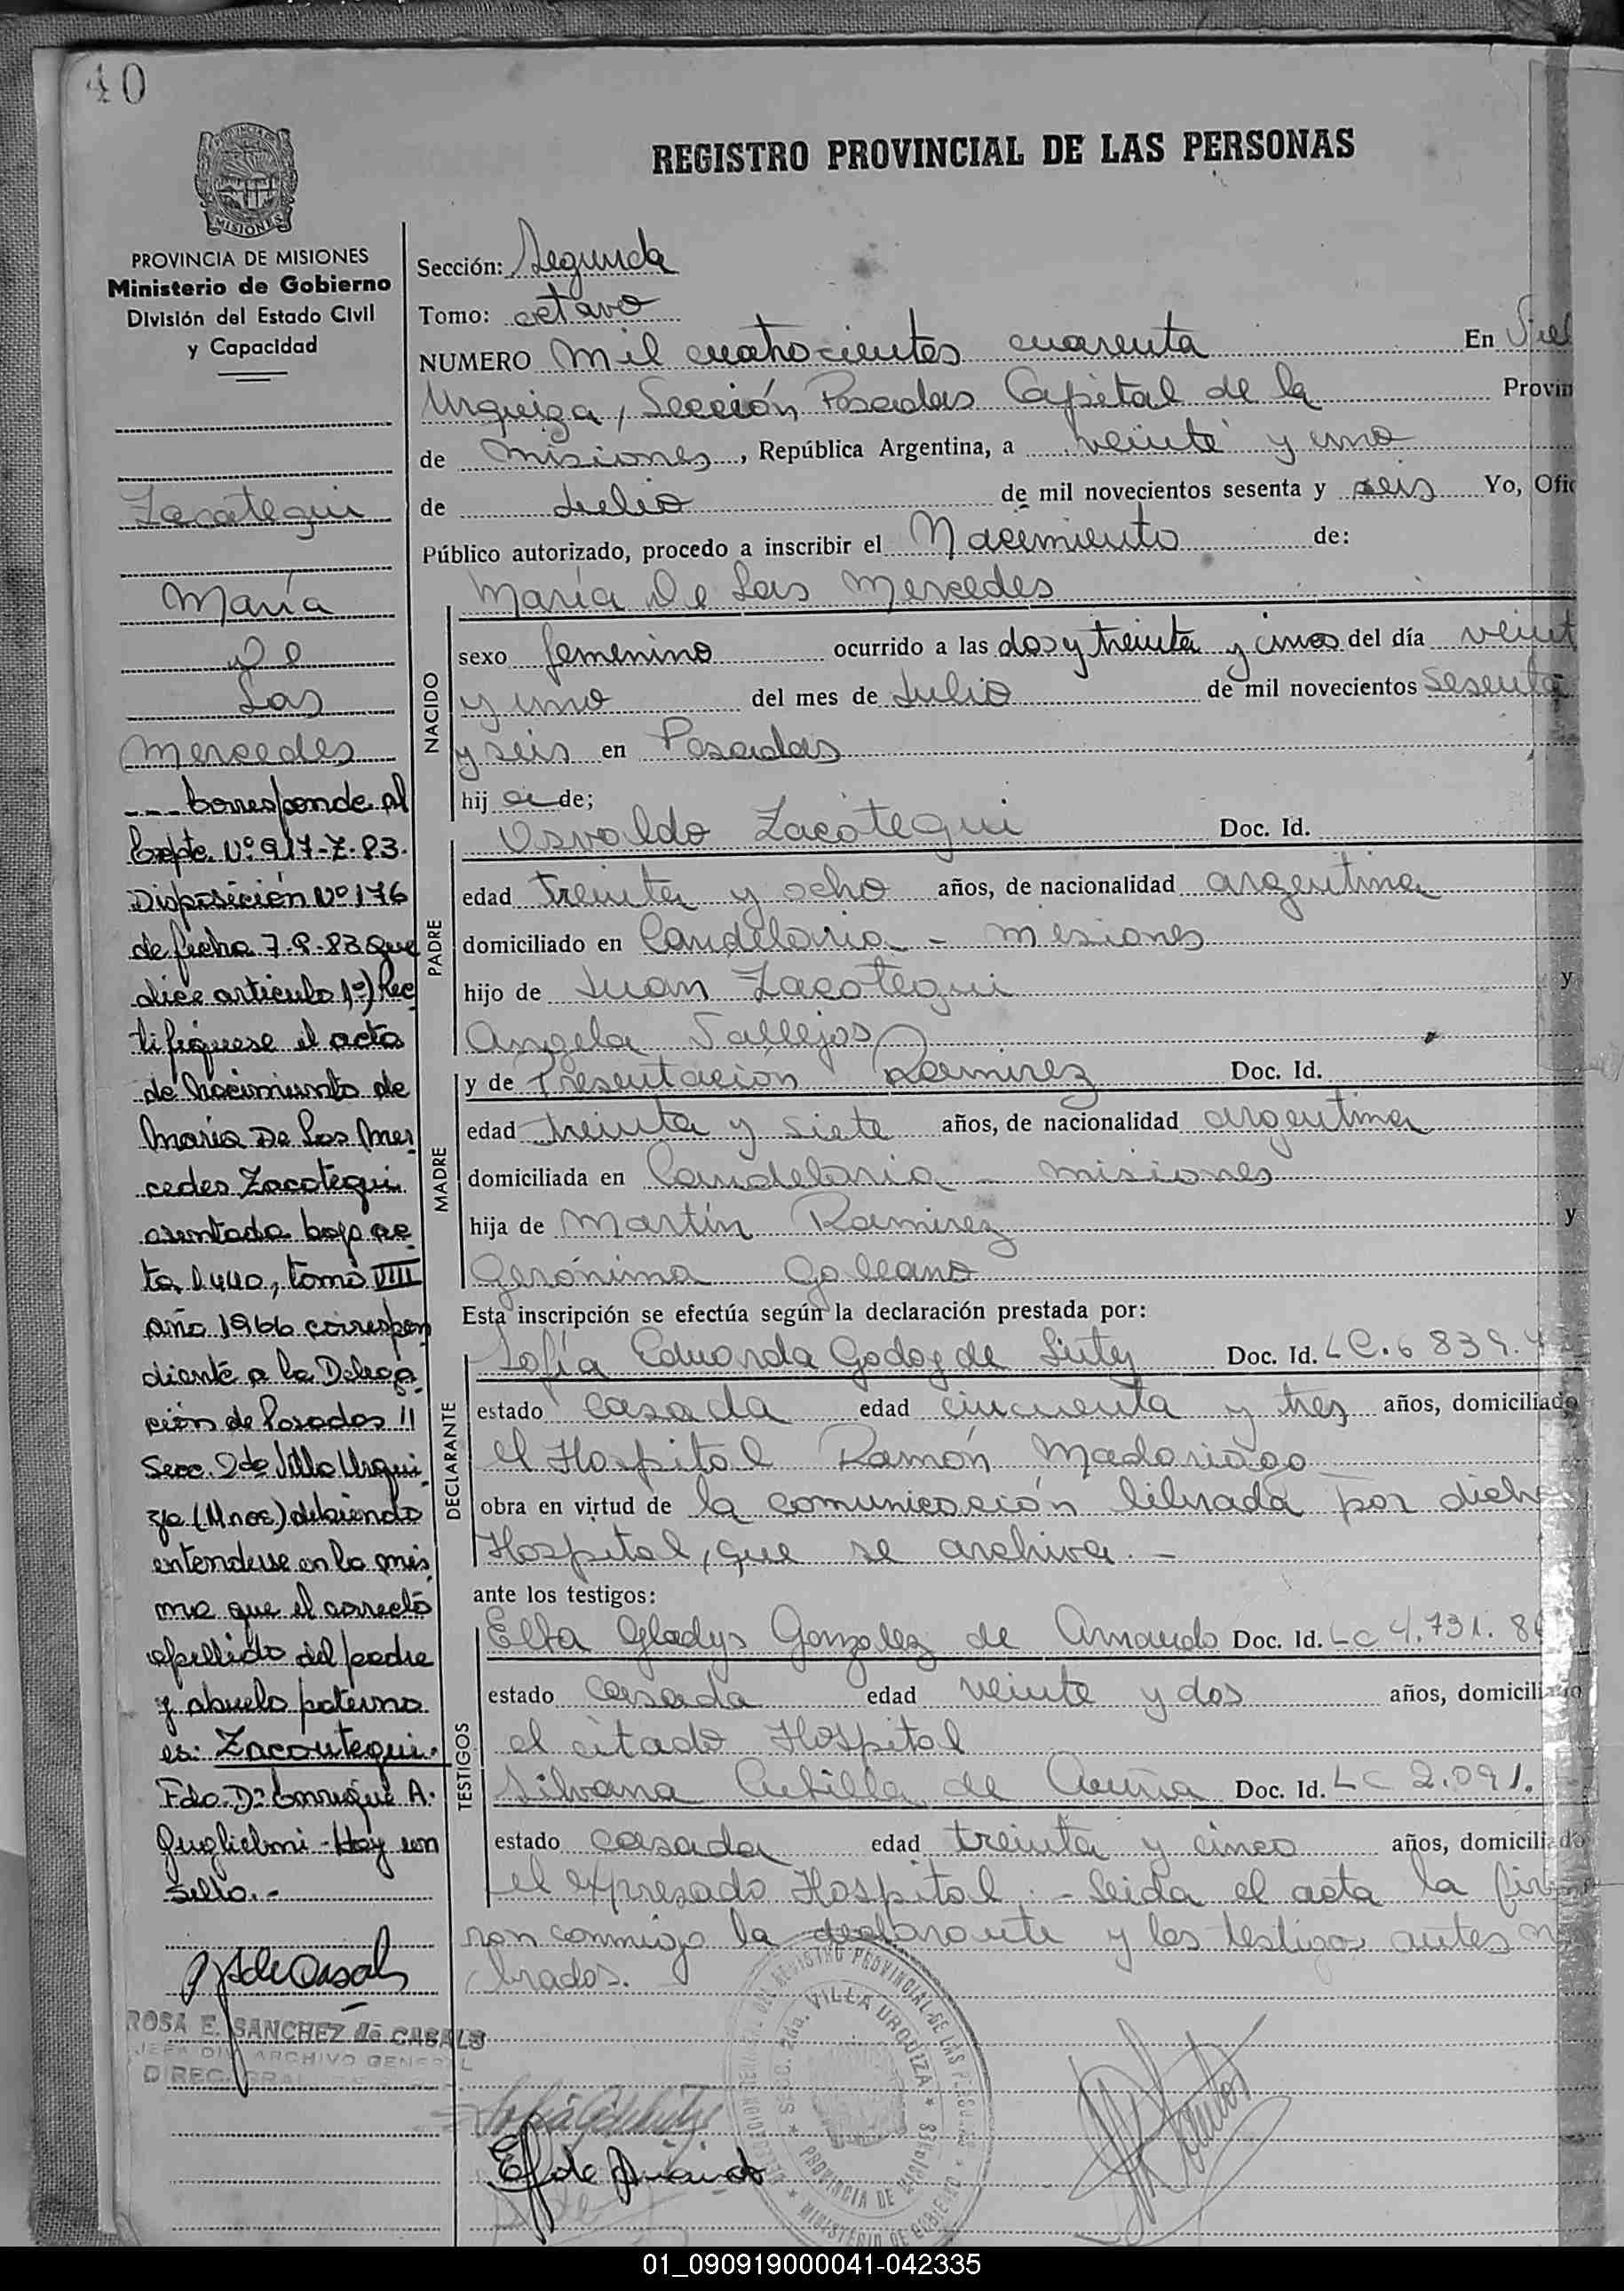 40
REGISTRO PROVINCIAL DE LAS PERSONAS
MISIONES
PROVINCIA DE MISIONES
Ministerio de Gobierno
División del Estado Civil
y Capacidad
Zacategui
María
De
Las
Mercedes
--- Corresponde al
Expte. Nº 917-Z-83.
Disposición Nº 176
de fecha 7-9-83 que
dice artículo 1º) Rec
tifiquese el acta
de Nacimiento de
María De Las Mer
cedes Zacotegui
asentada bajo ac
ta 1440, tomo VIII
año 1966 correspon
diente a la Delega
ción de Posadas II
Secc. 2da Villa Urqui
za (Mnes) debiendo
entenderse en la mis
ma que el correcto
apellido del padre
y abuelo paterno
es: Zacoutegui.
Fdo. Dº Enrique A.
Guglielmi - Hay un
Sello.-
ROSA E. SANCHEZ de CASALS
JEFA DIV. ARCHIVO GENERAL
DIREC. GRAL
Sección: Segunda
Tomo: octavo
NUMERO mil cuatrocientos cuarenta En
Urquiza, Sección Posadas Capital de la Provin
de Misiones, República Argentina, a veinte y uno
de Julio de mil novecientos sesenta y seis Yo, Ofic
Público autorizado, procedo a inscribir el Nacimiento de:
NACIDO
María De Las Mercedes
sexo femenino ocurrido a las dos y treinta y cinco del día veint
y uno del mes de Julio de mil novecientos Sesenta
y seis en Posadas
hij a de;
PADRE
Osvaldo Zacotegui Doc. Id.
edad treinta y ocho años, de nacionalidad argentina
domiciliado en Candelaria - Misiones
hijo de Juan Zacotegui y
Angela Vallejos
MADRE
y de Presentación Ramirez Doc. Id.
edad treinta y siete años, de nacionalidad argentina
domiciliada en Candelaria - misiones
hija de Martín Ramirez y
Gerónima Galeano
Esta inscripción se efectúa según la declaración prestada por:
DECLARANTE
Sofía Eduarda Godoy de Doc. Id. LC. 6 839.
estado casada edad cincuenta y tres años, domiciliado
el Hospital Ramón Madariaga
obra en virtud de la comunicación librada por dicho
Hospital, que se archiva. -
ante los testigos:
TESTIGOS
Elba Gladys Gonzalez de Doc. Id. LC 4.731.8
estado casada edad veinte y dos años, domiciliado
el citado Hospital
Silvana de Acuña Doc. Id. LC 2.091.
estado casada edad treinta y cinco años, domiciliado
el expresado Hospital. - Leida el acta la firma
ron conmigo la declarante y los testigos antes n
brados.
SECC. 2da. VILLA URQUIZA
01_090919000041-042335